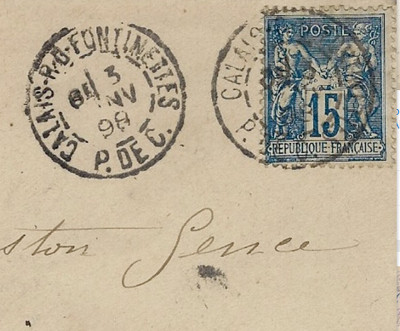 CALAIS-R.D-FONTINETTES
3
NV
98
P. DE C.
CALAIS
P.
POSTE
15
RÉPUBLIQUE FRANÇAISE
ston Sence